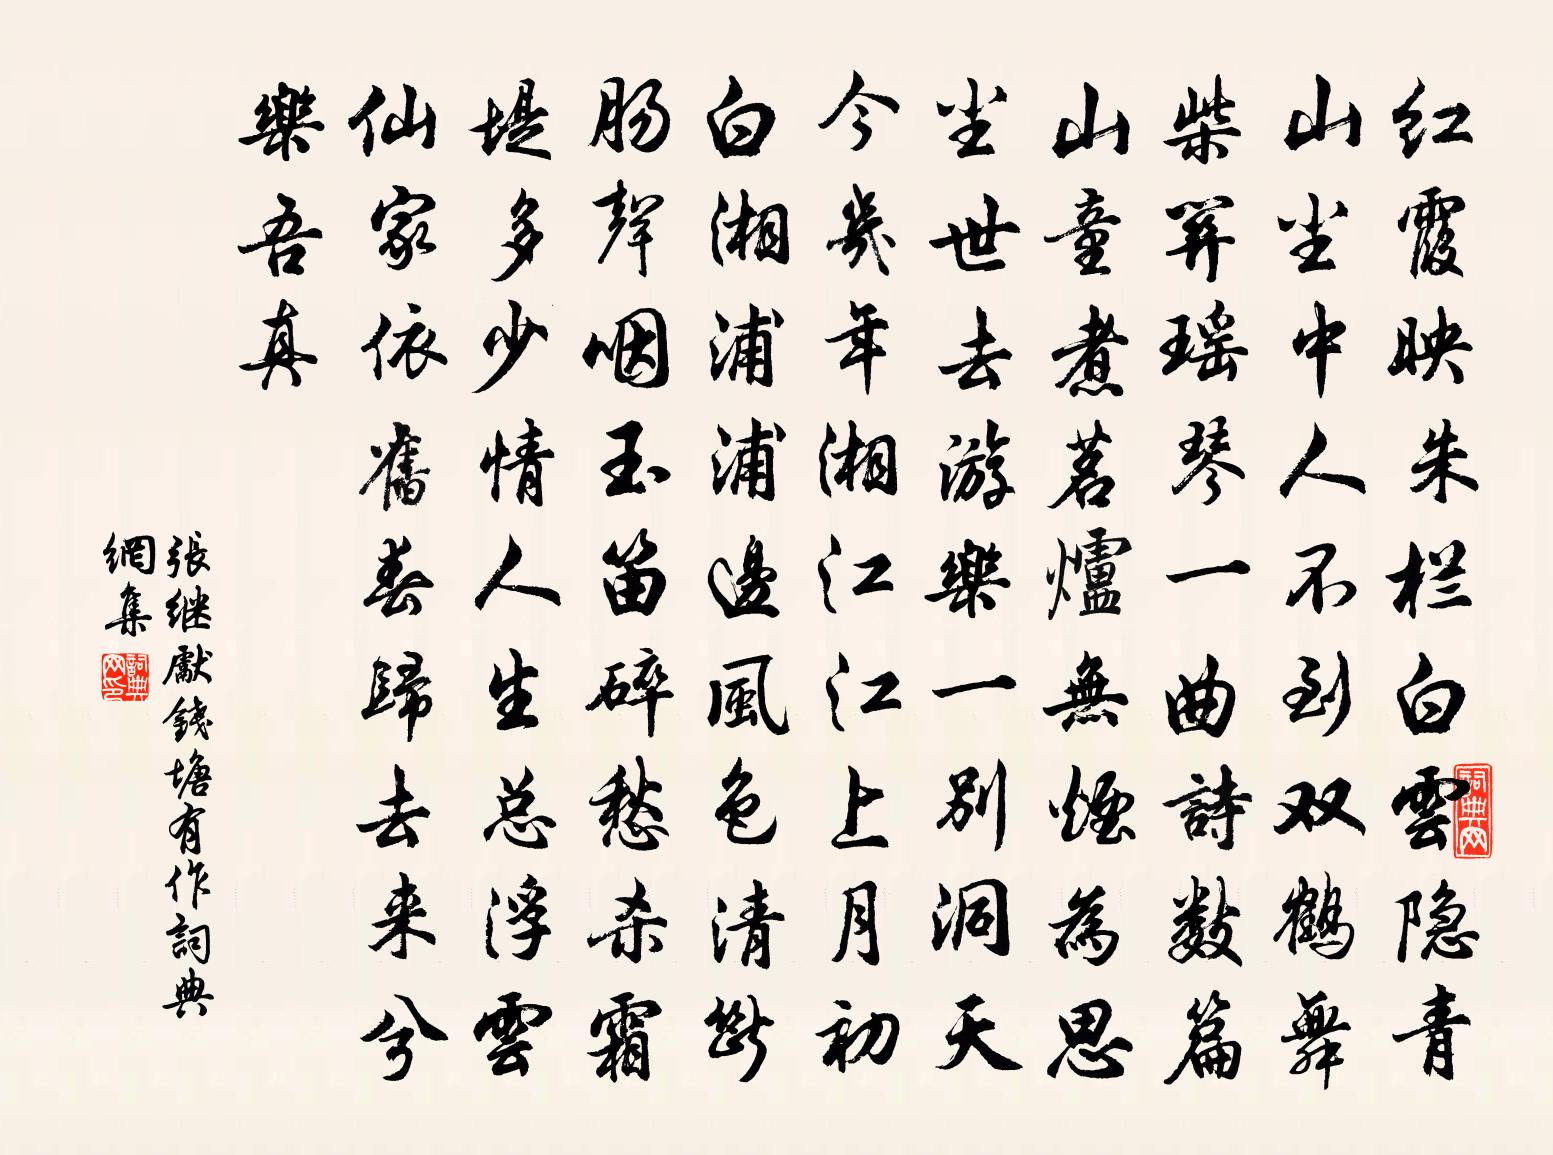 红霞映朱栏白雲隐青
山尘中人不到双鶴舞
柴関瑶琴一曲詩数篇
山童煮茗爐無煙為思
尘世去游樂一別洞天
今幾年湘江江上月初
白湘浦浦邊風色清斷
肠聲咽玉笛碎愁杀霜
堤多少情人生总浮雲
仙家依舊春歸去来兮
樂吾真
張继獻錢塘有作詞典
網集
詞典网
詞典网印